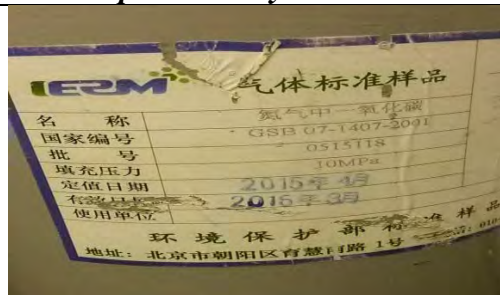 IERM 气体标准样品
名 称 氮气中一氧化碳
国家编号 GSB 07-1407-2001
批 号 0515118
填充压力 10MPa
定值日期 2015年4月
2016年3月
使用单位
环境保护部标准样品
地址: 北京市朝阳区育慧南路1号 010